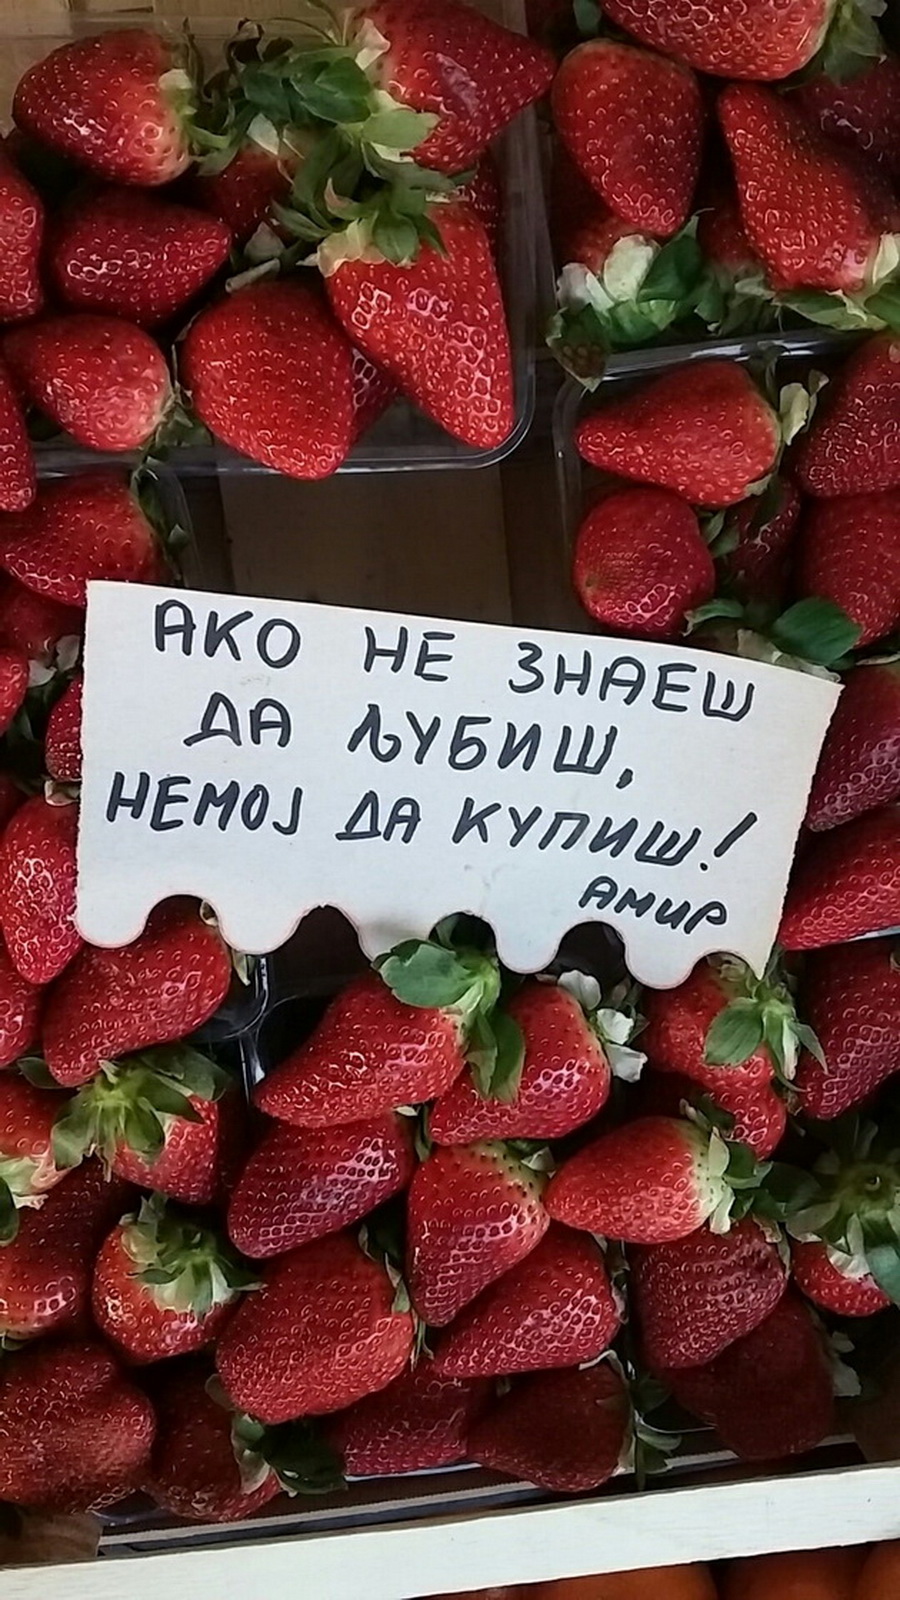 АКО НЕ ЗНАЕШ
ДА ЉУБИШ,
НЕМОЈ ДА КУПИШ!
АМИР